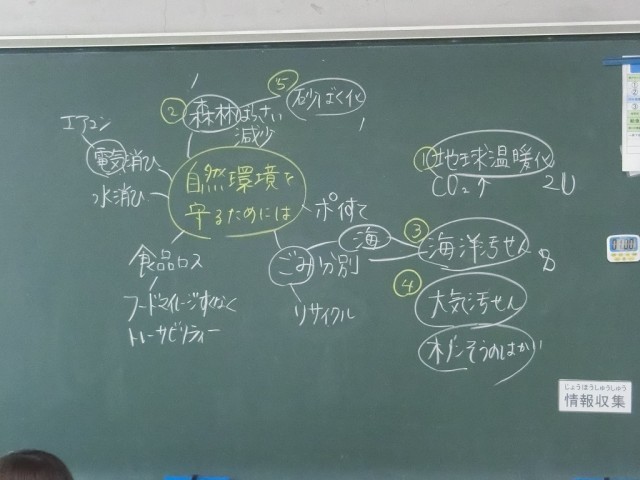 ⑤ 砂ばく化
② 森林ばっさい
減少
エアコン
電気消ひ
水消ひ
自然環境を
守るためには
ポイ捨て
① 地球温暖化
CO₂↑
20
海
③ 海洋汚せん
8
ごみ分別
リサイクル
④ 大気汚せん
オゾンそうのはかい
食品ロス
フードマイレージすくなく
トレーサビリティー
じょうほうしゅうしゅう
情報収集